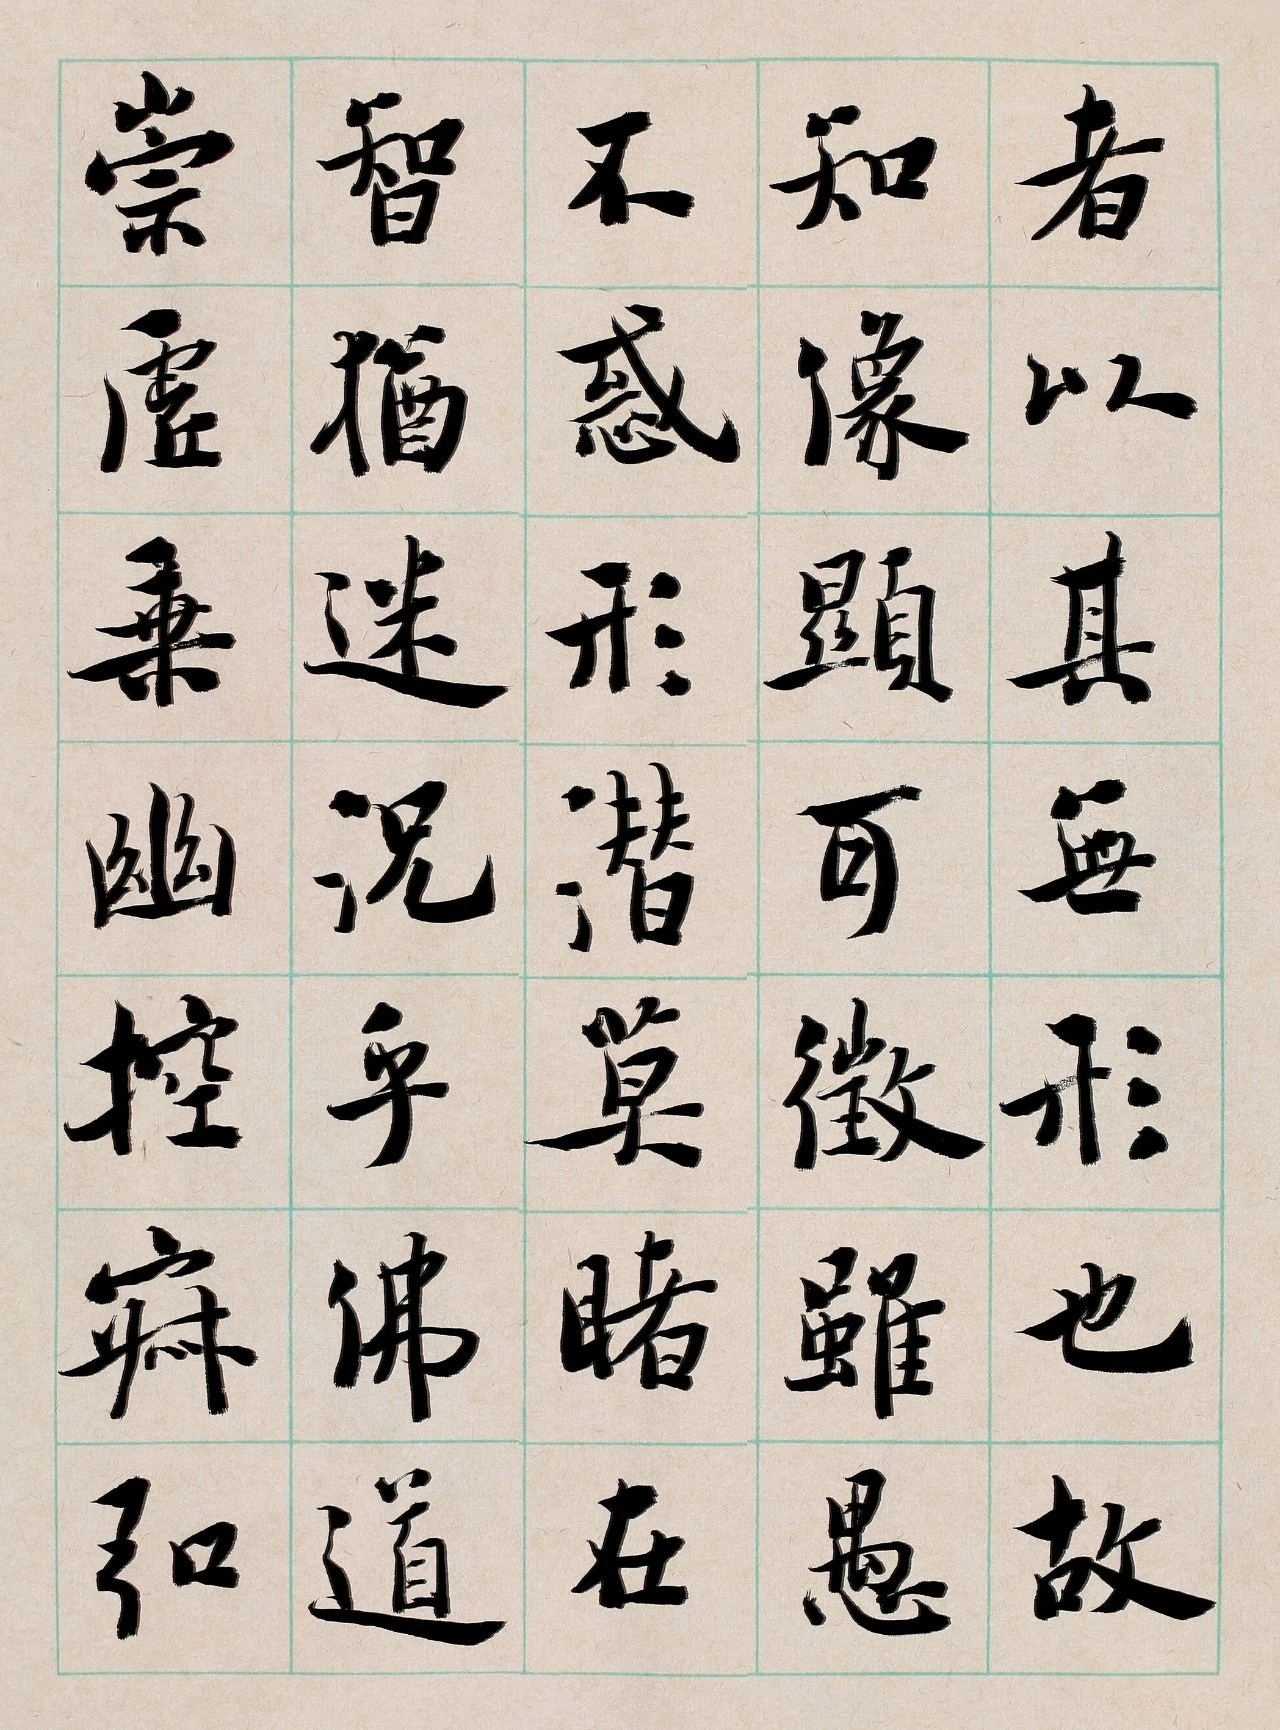 者以其無形也故
知像顯可徵雖愚
不惑形潛莫睹在
智猶迷況乎佛道
崇虛乗幽控寂弘